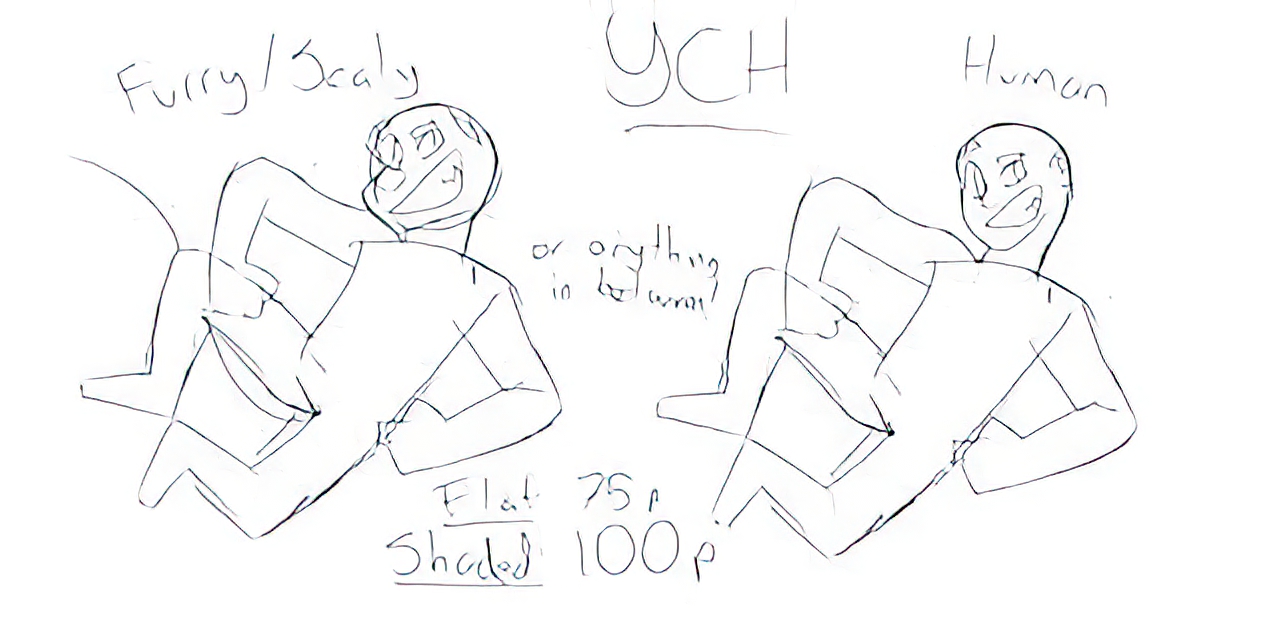 YCH
Furry/Scaly
Human
or anything
in between
Flat 75p
Shaded 100p